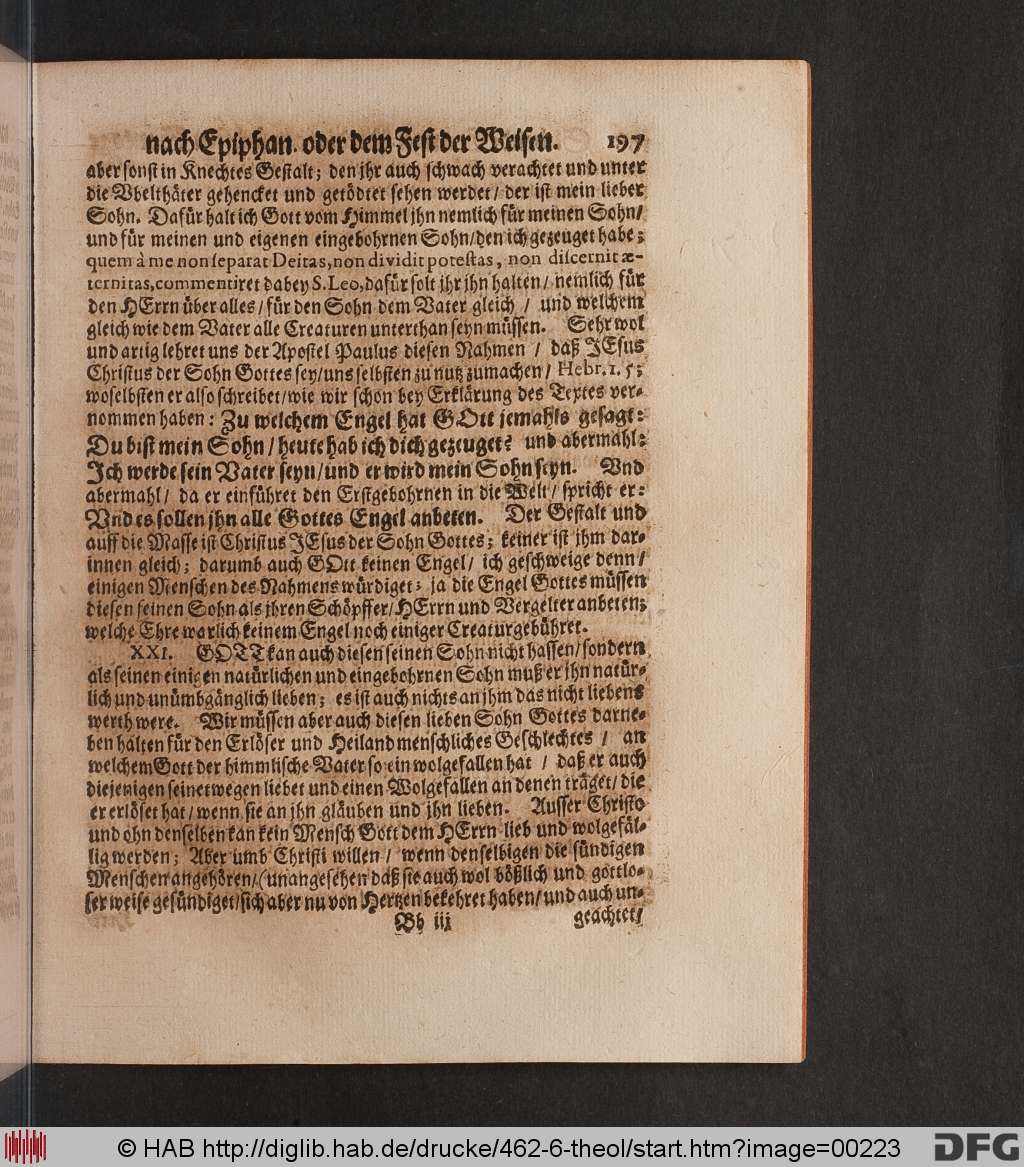 nach Epiphan. oder dem Fest der Weisen. 197
aber sonst in Knechtes Gestalt; den jhr auch schwach verachtet und unter
die Vbelthäter gehencket und getödtet sehen werdet/ der ist mein lieber
Sohn. Dafür halt ich Gott vom Himmel jhn nemlich für meinen Sohn/
und für meinen und eigenen eingebohrnen Sohn/den ich gezeuget habe;
quem à me non separat Deitas, non dividit potestas, non discernit æ-
ternitas, commentiret dabey S. Leo, dafür solt jhr jhn halten/ nemlich für
den HErrn über alles/ für den Sohn dem Vater gleich / und welchem
gleich wie dem Vater alle Creaturen unterthan seyn müssen. Sehr wol
und artig lehret uns der Apostel Paulus diesen Nahmen / daß JEsus
Christus der Sohn Gottes sey/uns selbsten zu nutz zumachen/ Hebr. 1. 5;
woselbsten er also schreibet/wie wir schon bey Erklärung des Textes ver-
nommen haben: Zu welchem Engel hat GOtt jemahls gesagt:
Du bist mein Sohn/heute hab ich dich gezeuget? und abermahl:
Ich werde sein Vater seyn/und er wird mein Sohn seyn. Vnd
abermahl/ da er einführet den Erstgebohrnen in die Welt/ spricht er:
Vnd es sollen jhn alle Gottes Engel anbeten. Der Gestalt und
auff die Masse ist Christus JEsus der Sohn Gottes; keiner ist jhm dar-
innen gleich; darumb auch GOtt keinen Engel/ ich geschweige denn/
einigen Menschen des Nahmens würdiget; ja die Engel Gottes müssen
diesen seinen Sohn als jhren Schöpffer/HErrn und Vergelter anbeten;
welche Ehre warlich keinem Engel noch einiger Creatur gebühret.
XXI. GOTT kan auch diesen seinen Sohn nicht hassen/sondern
als seinen einigen natürlichen und eingebohrnen Sohn muß er jhn natür-
lich und unümbgänglich lieben; es ist auch nichts an jhm das nicht liebens
werth were. Wir müssen aber auch diesen lieben Sohn Gottes darne-
ben halten für den Erlöser und Heiland menschliches Geschlechtes / an
welchem Gott der himmlische Vater so ein wolgefallen hat / daß er auch
diejenigen seinetwegen liebet und einen Wolgefallen an denen träget/ die
er erlöset hat/wenn sie an jhn gläuben und jhn lieben. Ausser Christo
und ohn denselben kan kein Mensch Gott dem HErrn lieb und wolgefäl-
lig werden; Aber umb Christi willen/ wenn denselbigen die sündigen
Menschen angehören/(unangesehen daß sie auch wol bößlich und gottlo-
ser weise gesündiget/sich aber nu von Hertzen bekehret haben/und auch un-
Bb iij geachtet/
© HAB http://diglib.hab.de/drucke/462-6-theol/start.htm?image=00223
DFG